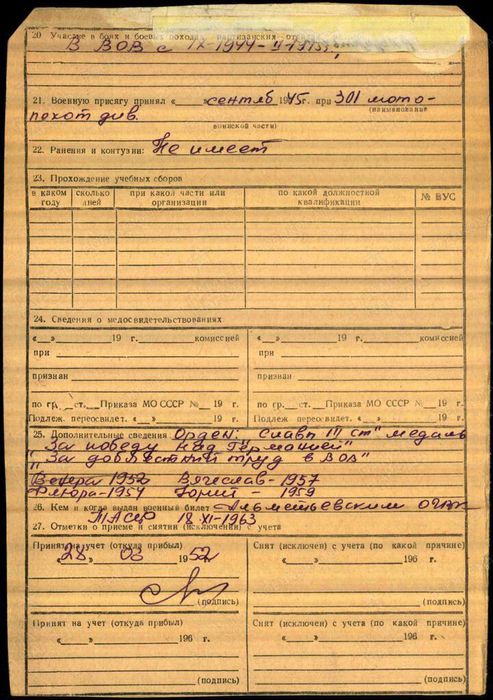 20 Участие в боях и боевых походах, партизанских
В ВОВ с IX-1944-
21. Военную присягу принял «__» сентяб 1945г. при 301 мото-
(наименование
пехот див.
воинской части)
22. Ранения и контузии: Не имеет
23. Прохождение учебных сборов
в каком году
сколько дней
при какой части или организации
по какой должностной квалификации
№ ВУС
24. Сведения о медосвидетельствованиях
«__» 19 г. комиссией
при
признан
по гр. ст. Приказа МО СССР № 19 г.
Подлеж. переосвидет. «__» 19 г.
«__» 19 г. комиссией
при
признан
по гр. ст. Приказа МО СССР № 19 г.
Подлеж. переосвидет. «__» 19 г.
25. Дополнительные сведения Орден: Славы III ст" медаль
"За победу над Германией"
"За доблестный труд в ВОВ"
Венера 1952 Вячеслав-1957
Флюра-1954 Юрий - 1959
26. Кем и когда выдан военный билет Альметьевским ОГВК
ТАССР 18.XI-1963
27. Отметки о приеме и снятии (исключении) с учета
Принят на учет (откуда прибыл)
«28» 08 1952
(подпись)
Снят (исключен) с учета (по какой причине)
«__» 196 г.
(подпись)
Принят на учет (откуда прибыл)
«__» 196 г.
(подпись)
Снят (исключен) с учета (по какой причине)
«__» 196 г.
(подпись)